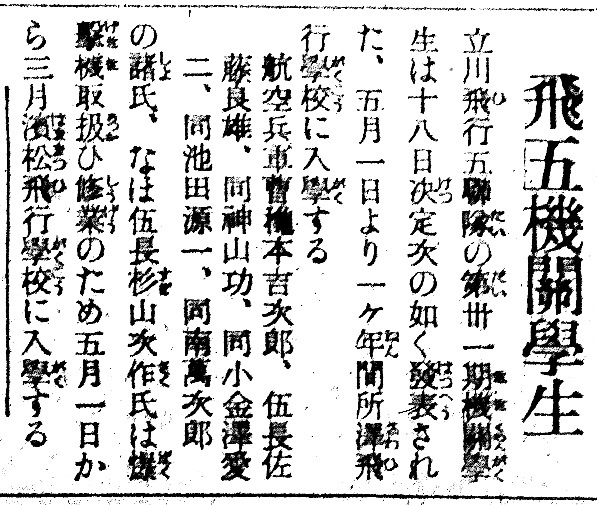 飛五機關學生
立川飛行五聯隊の第卅一期機關學
生は十八日決定次の如く發表され
た、五月一日より一ケ年間所澤飛
行學校に入學する
航空兵軍曹 本吉次郎、伍長佐
藤良雄、同神山功、同小金澤愛
二、同池田源一、同南萬次郎
の諸氏、なほ伍長杉山次作氏は爆
擊機取扱ひ修業のため五月一日か
ら三月濱松飛行學校に入學する